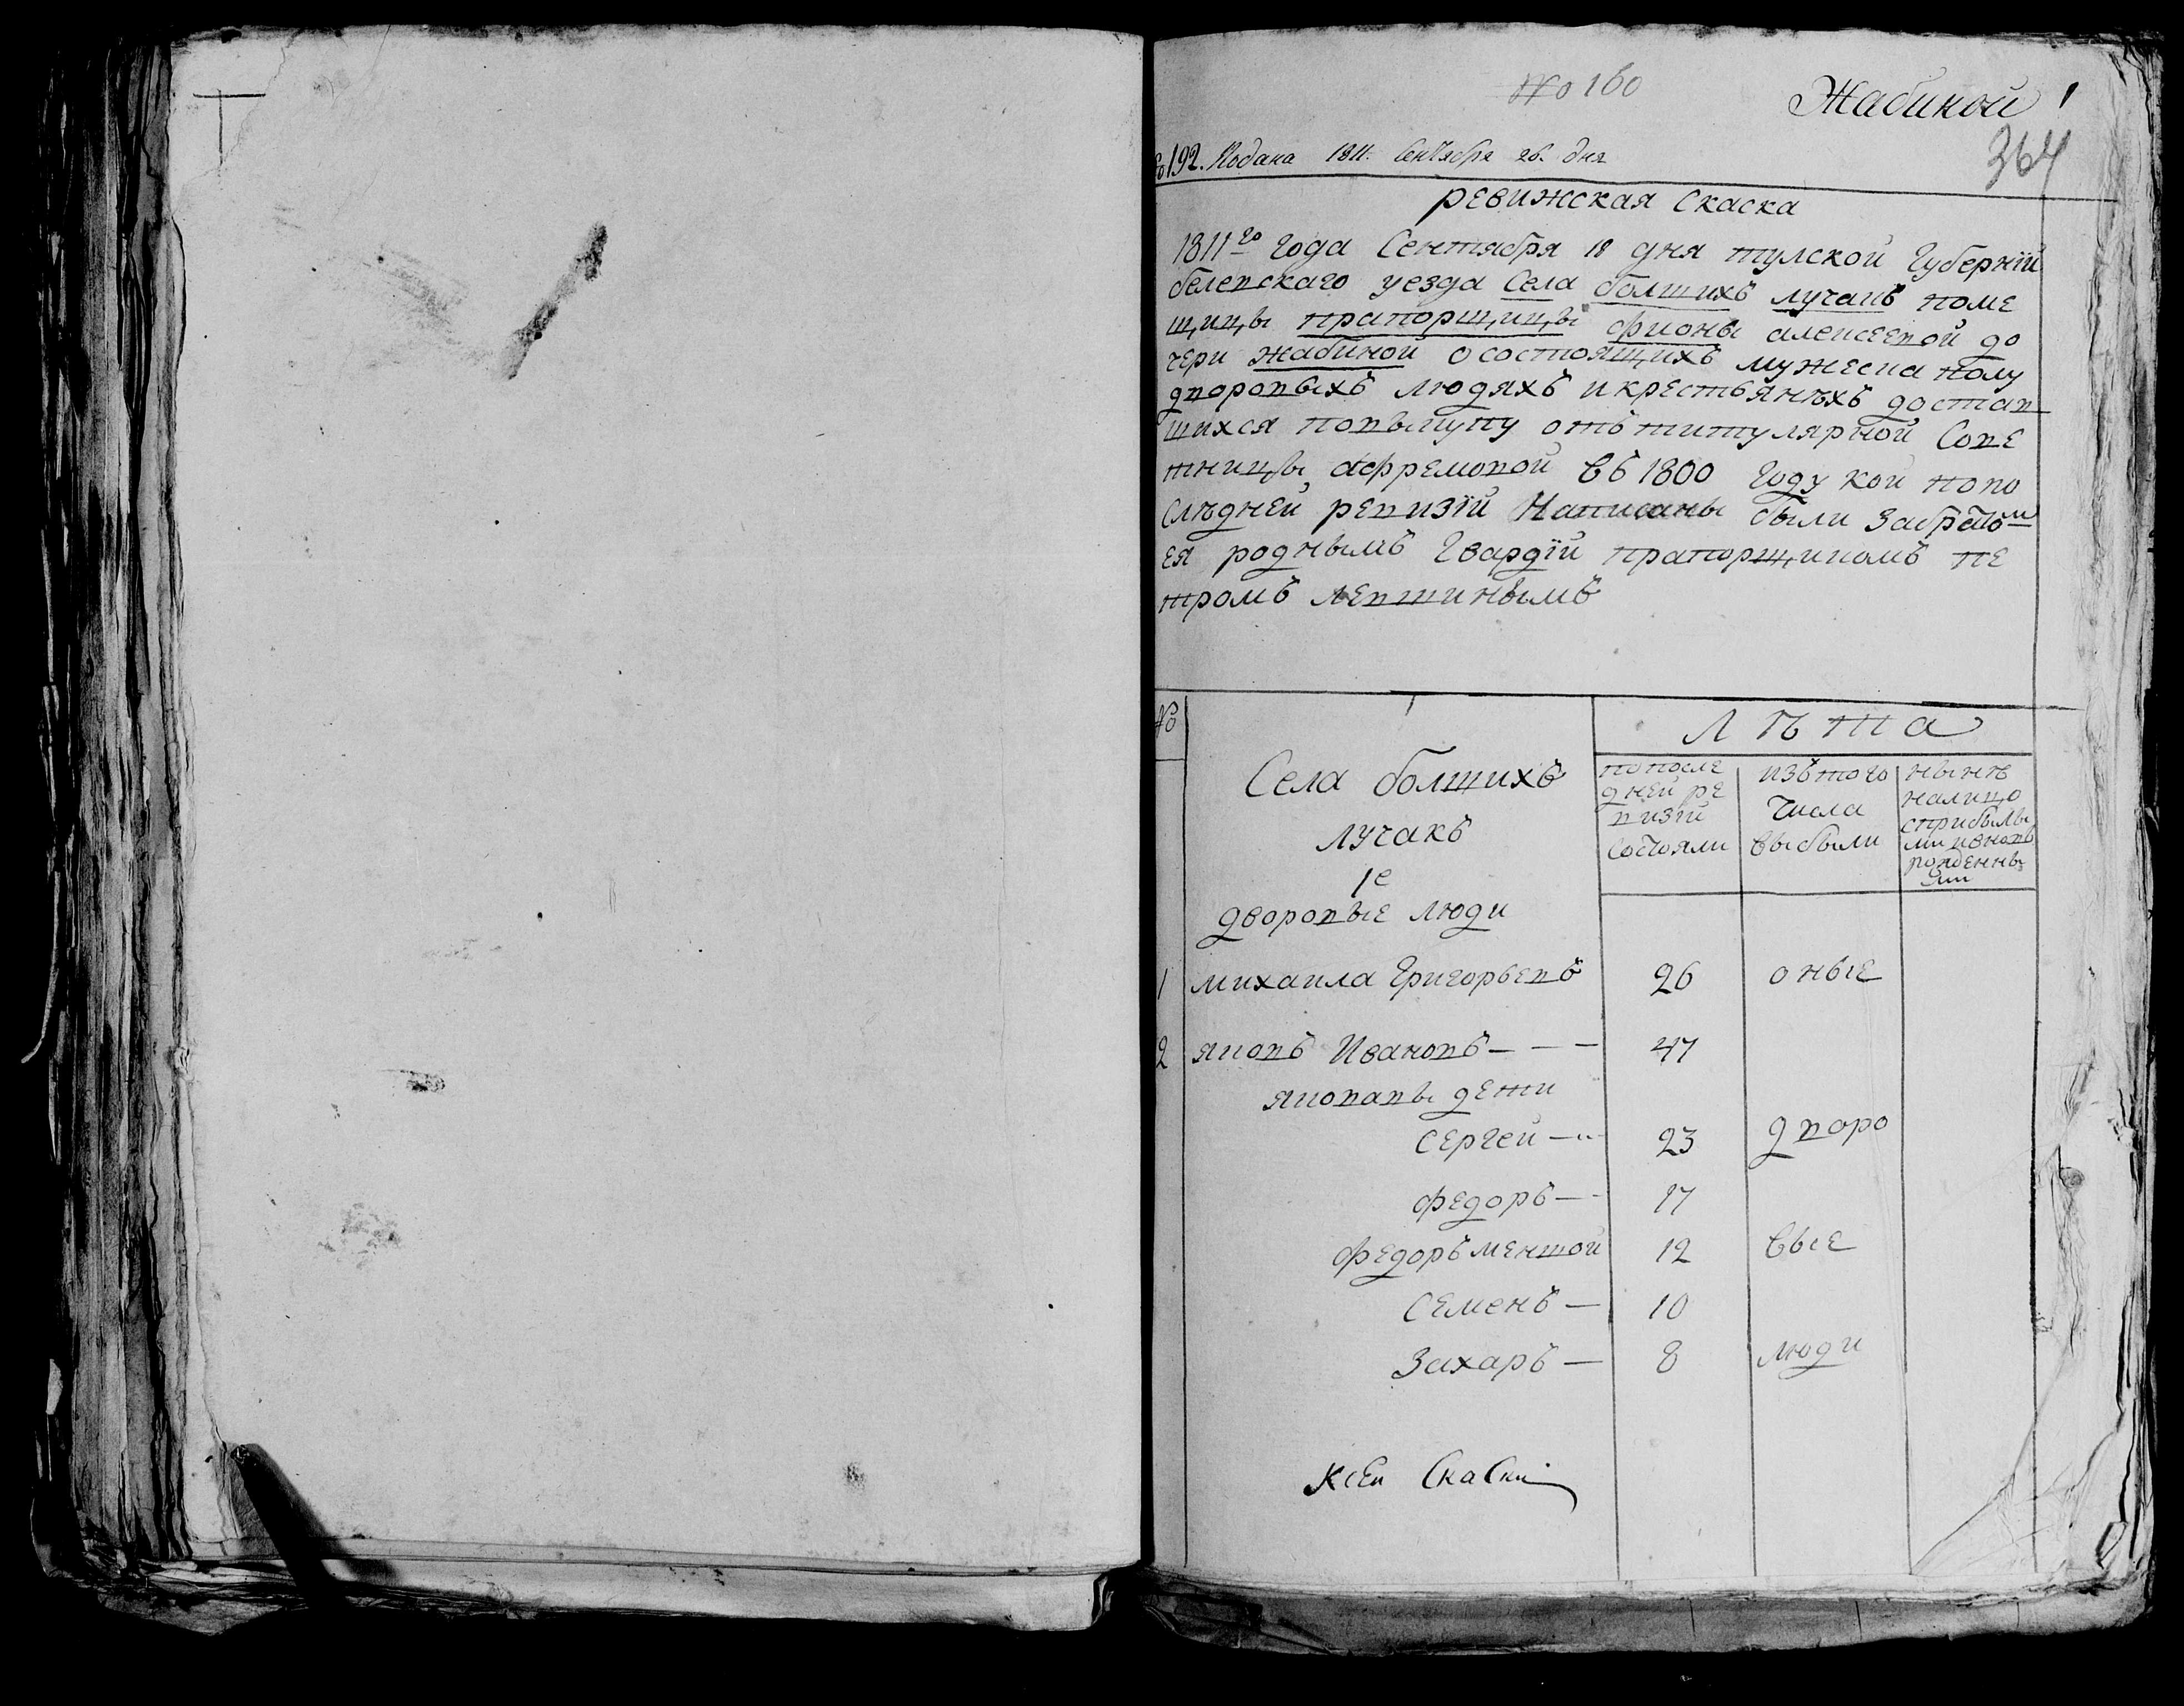 № 160
Жабиной 1
364
№ 192. Подана 1811. Сентября 26. дня
ревижская скаска
1811го года Сентября 18 дня тулской Губернїи
белевскаго уезда Села болших лучакъ поме
щицы прапорщицы фионы алексеевой до
чери жабиной о состоящихъ мужеска полу
дворовыхъ людяхъ и крестьянѣхъ достав
шихся повыкупу отъ титулярной Сове
тницы Афремовой въ 1800 году кои по по
следней ревизїи Написаны были за братом
ея роднымъ Гвардїи прапорщикомъ пе
тромъ левшинымъ
№
Лѣта
Села болшихъ
лучакъ
по после
дней ре
визїи
состояли
изъ того
числа
выбыли
нынѣ
налицо
с прибылы
ми и вновь
рожденны
ми
1е
дворовые люди
1 михаила Григорьевъ 26 оные
2 яковъ Ивановъ — — — 47
яковавы дети
Сергей — 23 дворо
федоръ — 17
федоръ меншой 12 вые
Семенъ — 10
Захаръ — 8 люди
Ксеи Скаски